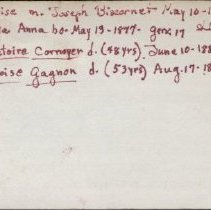 ise m. Joseph Biscornet May 10-1
a Anna bo- May 13-1877- gen: 17
toire Cornoyer d. (48yrs) June 10-188
oise Gagnon d. (53yrs) Aug. 17-18